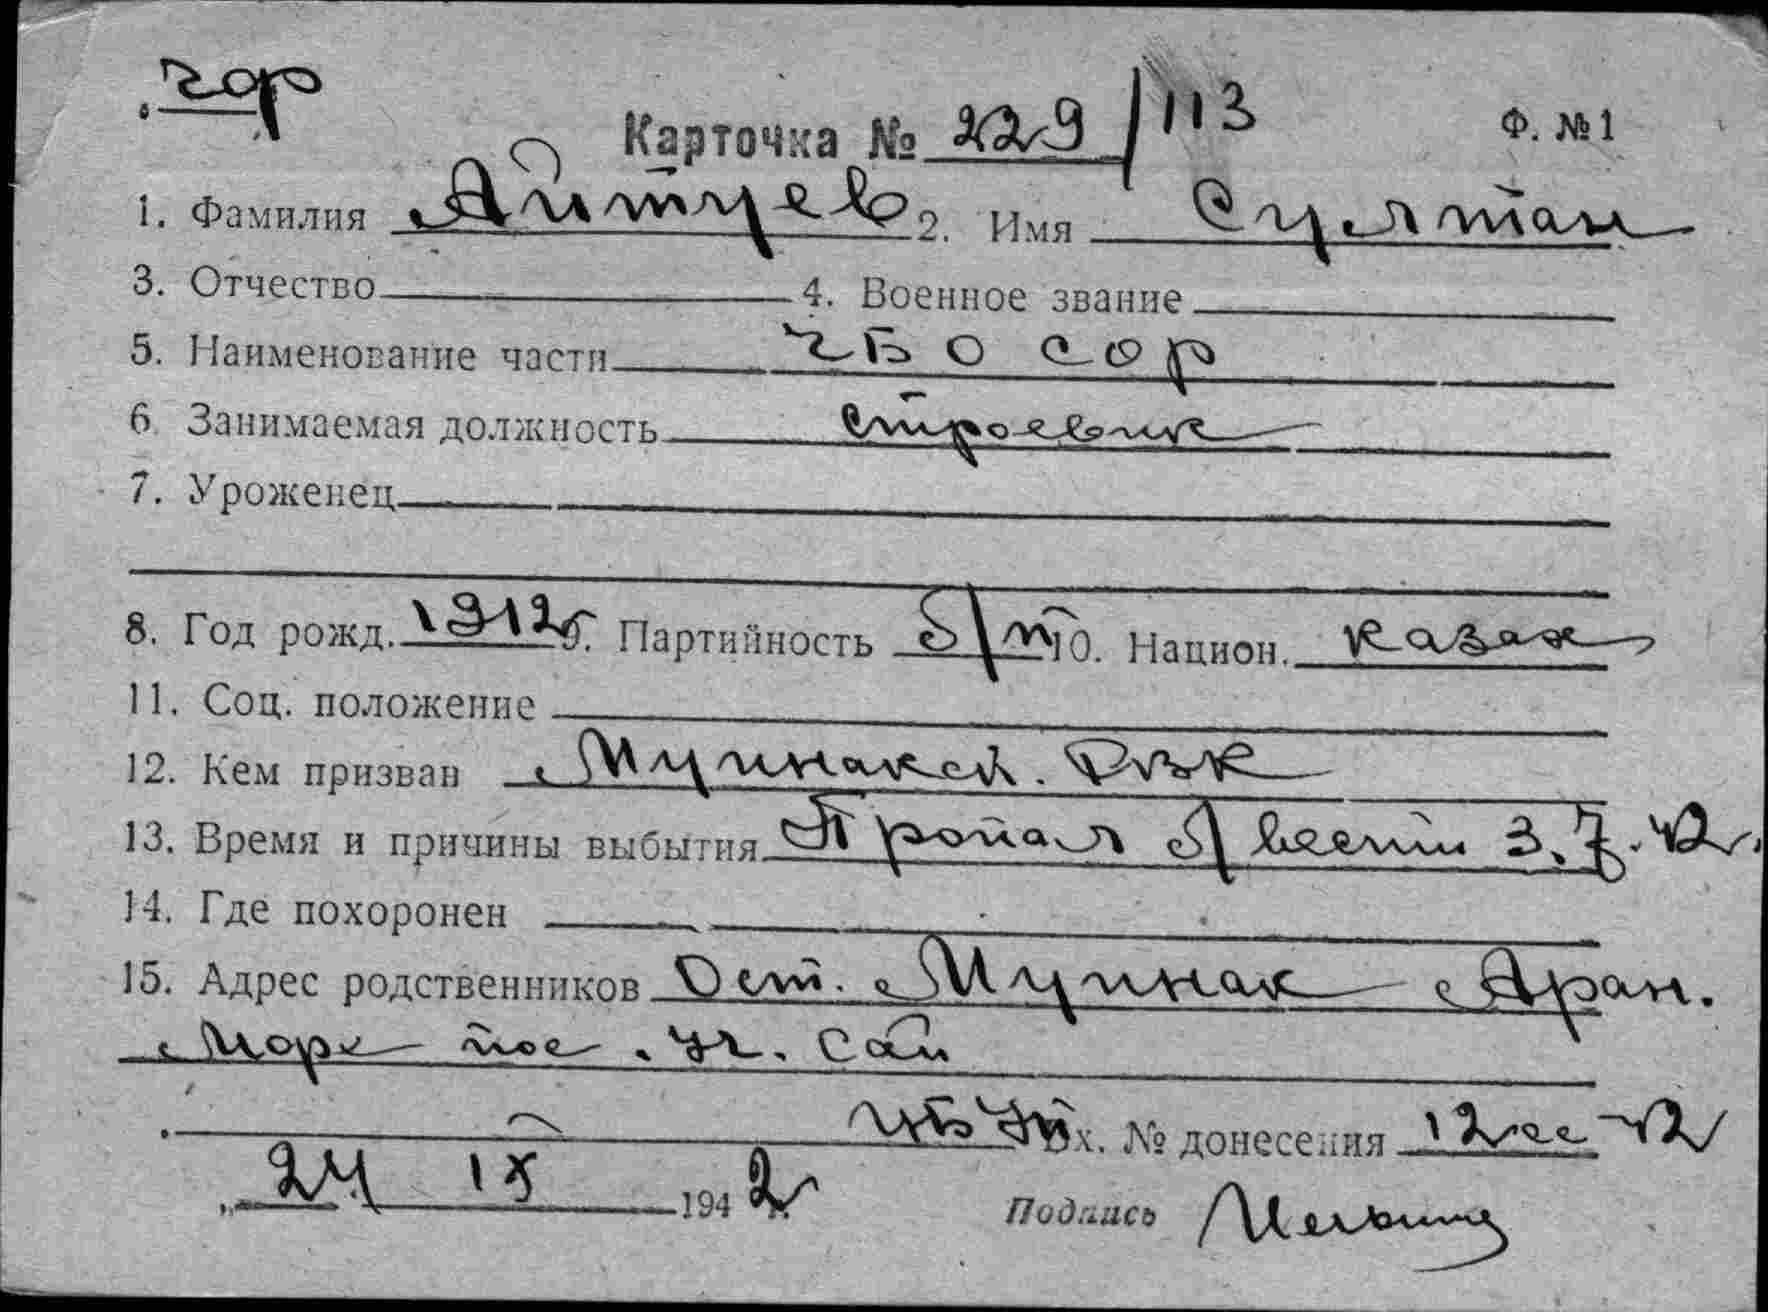 чор
Карточка № 229/113 Ф. №1
1. Фамилия Айтуев 2. Имя Султан
3. Отчество 4. Военное звание
5. Наименование части ЧБО СОР
6. Занимаемая должность строевик
7. Уроженец
8. Год рожд. 1912 9. Партийность б/п 10. Национ. казах
11. Соц. положение
12. Кем призван Муинакск. РВК
13. Время и причины выбытия Пропал б/вести 3.7.42г.
14. Где похоронен
15. Адрес родственников Ост. Муинак Арал.
Море пос. уч. Сай
Вх. № донесения 12сс 42
24 IX 1942 г. Подпись